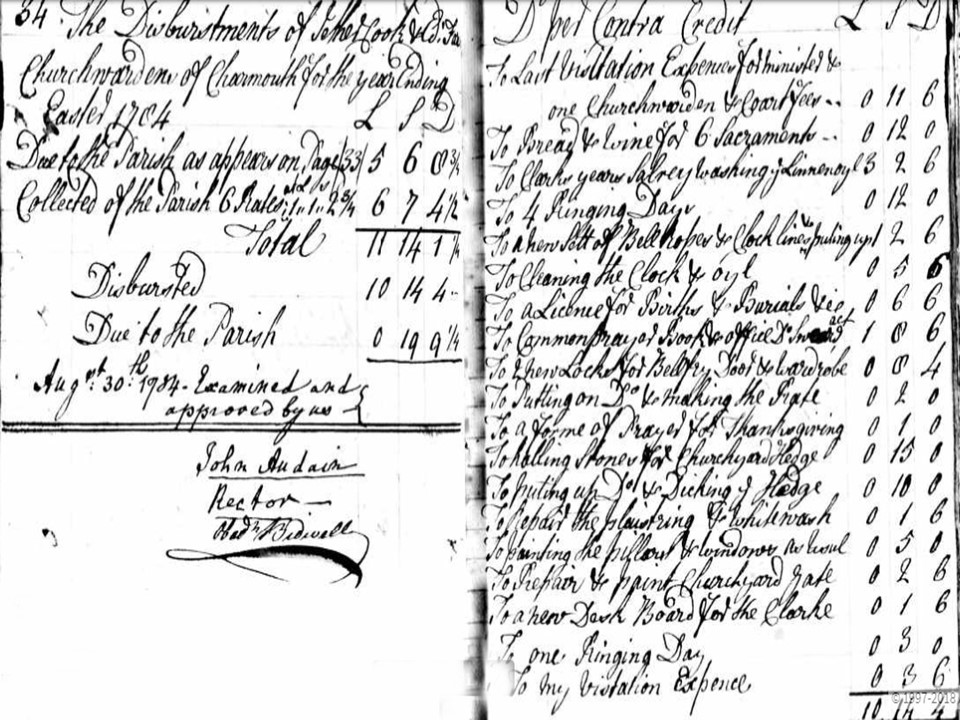 34 The Disburstments of Cook & Ed:
Churchwardens of Charmouth for the year Ending
Easter 1784 L S D
Due to the Parish as appears on Page (33) 5 6 8 3/4
Collected of the Parish 6 Rates at L s 1" 1" 2 3/4 6 7 4 1/2
Total 11 14 1 1/4
Disbursted 10 14 4
Due to the Parish 0 19 9 1/4
Augst. 30th. 1784 - Examined and
approved by us
John Audain
Rector
Bidwell
Dº per Contra Credit L S D
To Last Visitation Expences for minister &
one Churchwarden & Court fees -- 0 11 6
To Bread & wine for 6 Sacraments -- 0 12 0
To Clarks years Salrey washing y Linnen oyl 3 2 6
To 4 Ringing Days 0 12 0
To a new Sett of Bell Ropes & Clock lines & puting up 1 2 6
To Cleaning the Clock & oyl 0 5 6
To a Licence for Births & Burials &c 0 6 6
To Common prayer Book & offise Dº act 1 8 6
To 2 new Locks for Bellfry Door & wardrobe 0 8 4
To Putting on Dº & making the Rate 0 2 0
To a forme of Prayer for Thanksgiving 0 1 0
To halling Stones for Churchyard Hedge 0 15 0
To puting up Dº & Dicking y Hedge 0 10 0
To Repair the plaustring & whitewash 0 1 6
To painting the pillars & windows as usul 0 5 0
To Repair & paint Churchyard Gate 0 2 6
To a new Desk Board for the Clarke 0 1 6
To one Ringing Day 0 3 0
To my Visitation Expence 0 3 6
10 14 4
© 1997-2018